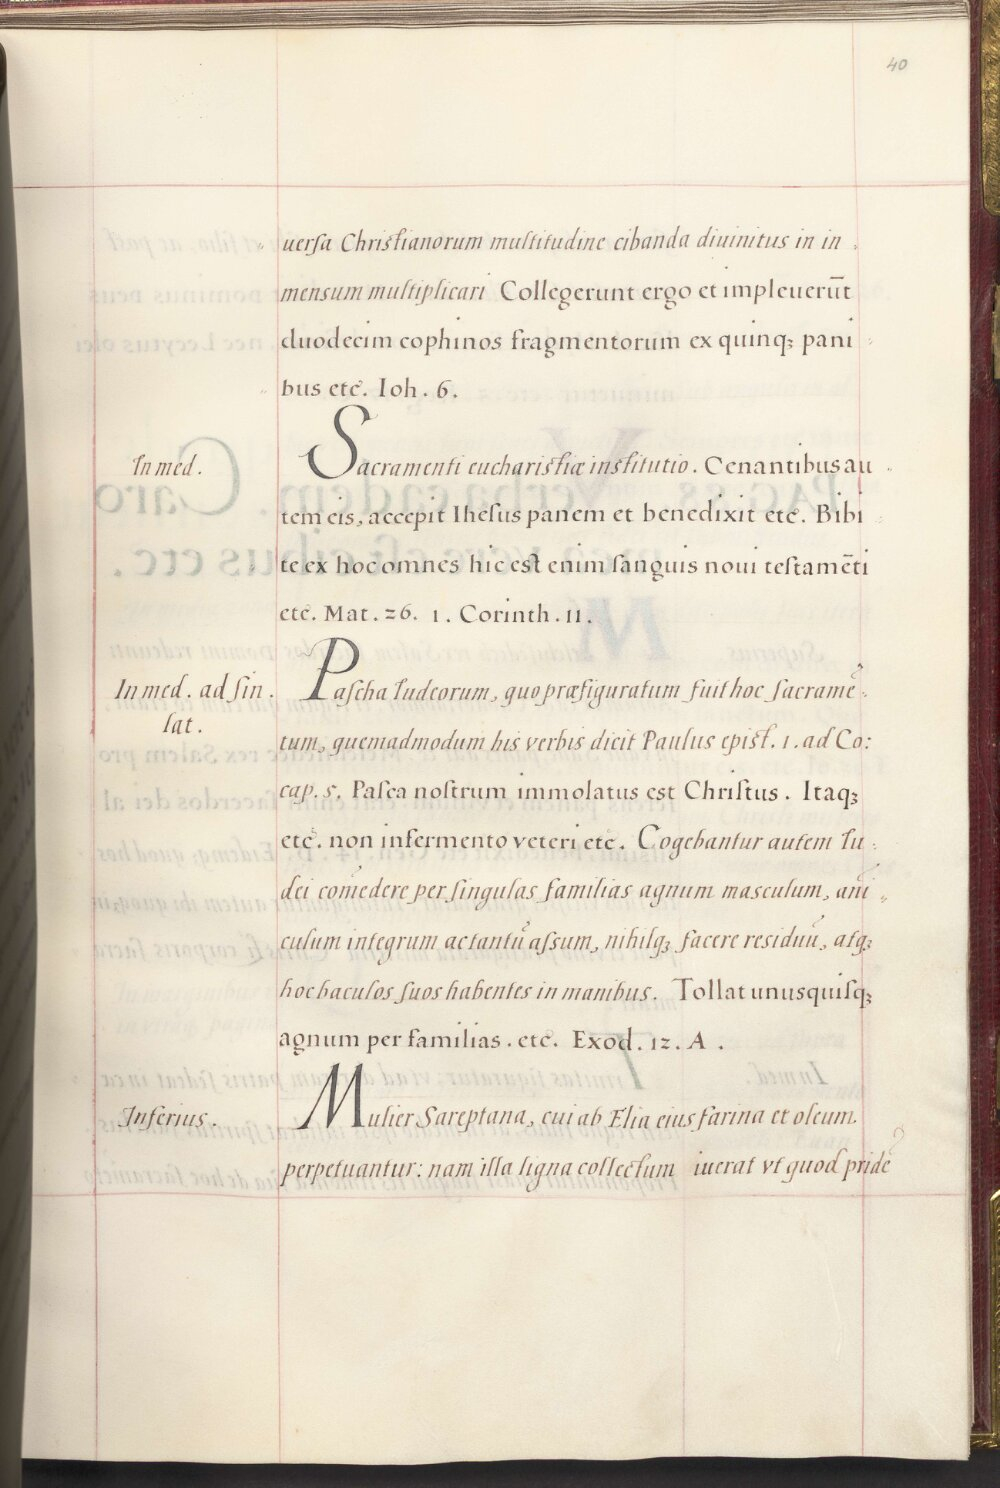 40
uersa Christianorum multitudine cibanda diuinitus in in-
mensum multiplicari Collegerunt ergo et impleuerūt
duodecim cophinos fragmentorum ex quinq; pani-
bus etc. Ioh. 6.
In med.
Sacramenti eucharistiæ institutio. Cenantibus au-
tem eis, accepit Ihesus panem et benedixit etc. Bibi-
te ex hoc omnes hic est enim sanguis noui testamēti
etc. Mat. 26. 1. Corinth. 11.
In med. ad sin.
lat.
Pascha Iudeorum, quo præfiguratum fuit hoc sacramē-
tum, quemadmodum his verbis dicit Paulus epist. 1. ad Co:
cap. 5. Pasca nostrum immolatus est Christus. Itaq;
etc. non in fermento veteri etc. Cogebantur autem Iu-
dei comedere per singulas familias agnum masculum, anni-
culum integrum ac tantū assum, nihilq; facere residuū, atq;
hoc baculos suos habentes in manibus. Tollat unusquisq;
agnum per familias. etc. Exod. 12. A.
Inferius.
Mulier Sareptana, cui ab Elia eius farina et oleum.
perpetuantur: nam illa ligna collectum iuerat vt quod pridē